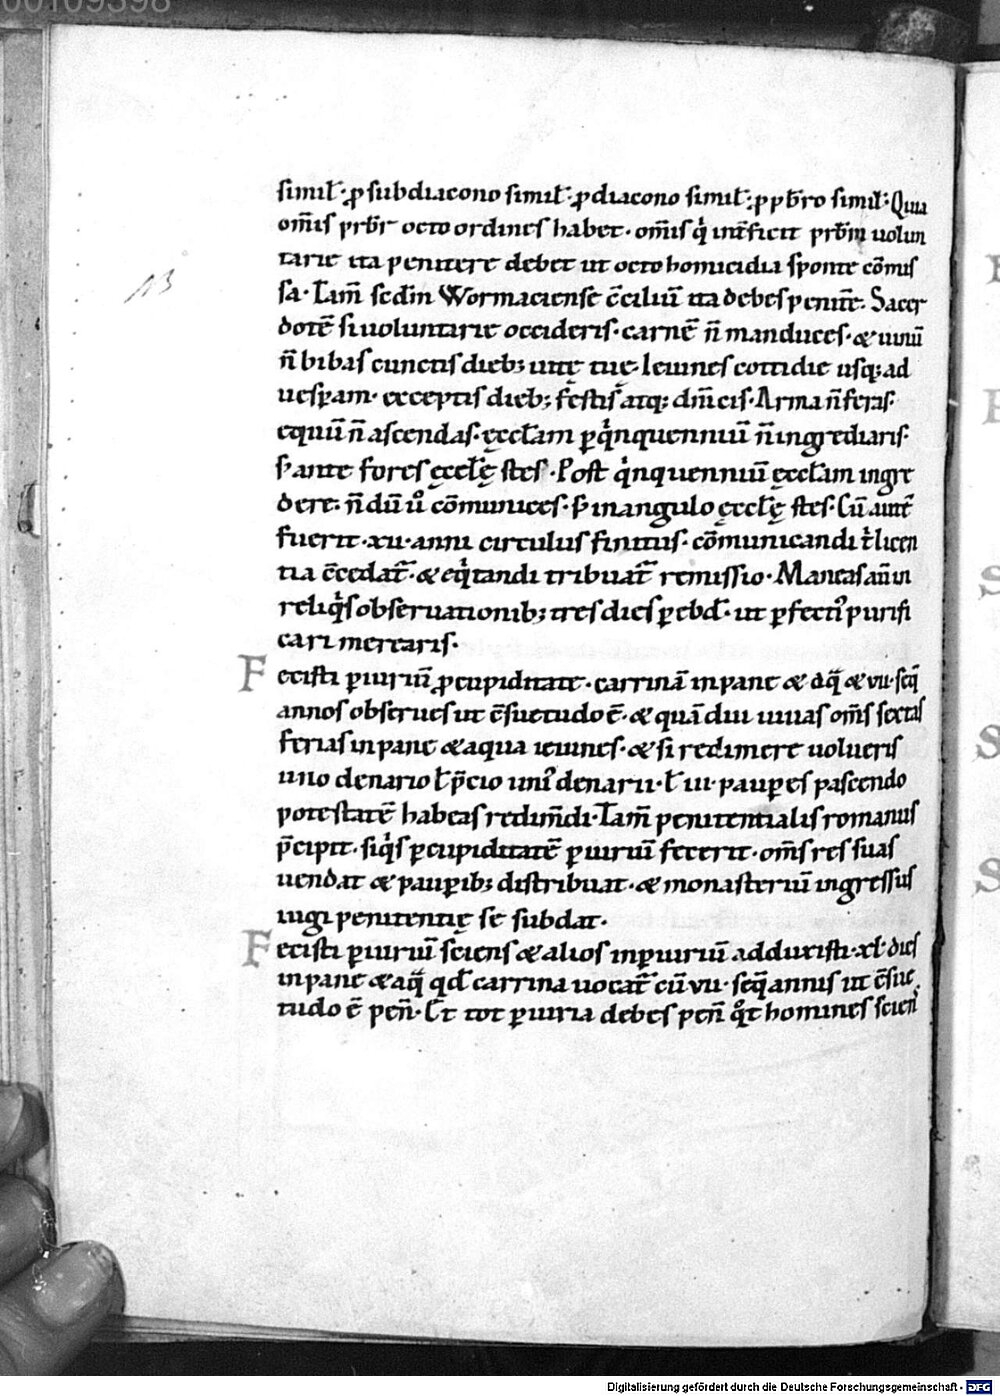 00109398
simil̅· ꝓ subdiacono simil̅· ꝓ diacono simil̅· ꝓ pb̅ro simil̅· Quia
om̅is prb̅r octo ordines habet· om̅is qͥ int̅ficit prb̅m uolun
tarie ita penitere debet ut octo homicidia sponte co̅mis
sa· Tam̅ sedm̅ Wormaciense c̅ciliu̅ ita debes penit̅e· Sacer
dote̅ si uoluntarie occideris· carne̅ n̅ manduces· & uinu̅
n̅ bibas cunctis dieb; uitę tuę· Ieiunes cottidie usq; ad
uesꝑam· exceptis dieb; festis atq; dm̅icis· Arma n̅ feras·
equu̅ n̅ ascendas· ęccl̅am ꝑ qͥnquenniu̅ n̅ ingrediaris·
s; ante fores ęccl̅ę stes· Post qͥnquenniu̅ ęccl̅am ingre
dere· n̅du̅ uͦ co̅munices· s; in angulo ęccl̅ę stes· Cu̅ aut̅
fuerit· xii· anni circulus finitus· co̅municandi t̕ licen
tia c̅cedat᷑· & eqͥtandi tribuat᷑ remissio· Maneas aut̅ in
reliqͥs obseruationib; tres dies ꝑ ebd̅· ut ꝑfectiꝰ purifi
cari merearis·
Fecisti ꝑiuriu̅ ꝓ cupiditate· carrina̅ in pane & aq̅ & vii· seq̅
annos obserues ut c̅suetudo e̅· & qua̅diu uiuas om̅s sextas
ferias in pane & aqua ieiunes· & si redimere uolueris
uno denario l̅ p̅cio uniꝰ denarii· l̅ iii· pauꝑes pascendo
potestate̅ habeas redim̅di· Tam̅ penitentialis romanus
p̅cipit· siqͥs ꝑ cupiditate̅ ꝑiuriu̅ fecerit· om̅s res suas
uendat & pauꝑib; distribuat· & monasteriu̅ ingressus
iugi penitentię se subdat·
Fecisti ꝑiuriu̅ sciens & alios in ꝑiuriu̅ adduxisti· xl· dies
in pane & aq̅ qd̅ carrina uocat᷑ cu̅ vii· seq̅ annis ut c̅sue
tudo e̅ pen̅· Et tot ꝑiuria debes pen̅ qͦt homines scien̅
13
Digitalisierung gefördert durch die Deutsche Forschungsgemeinschaft - DFG